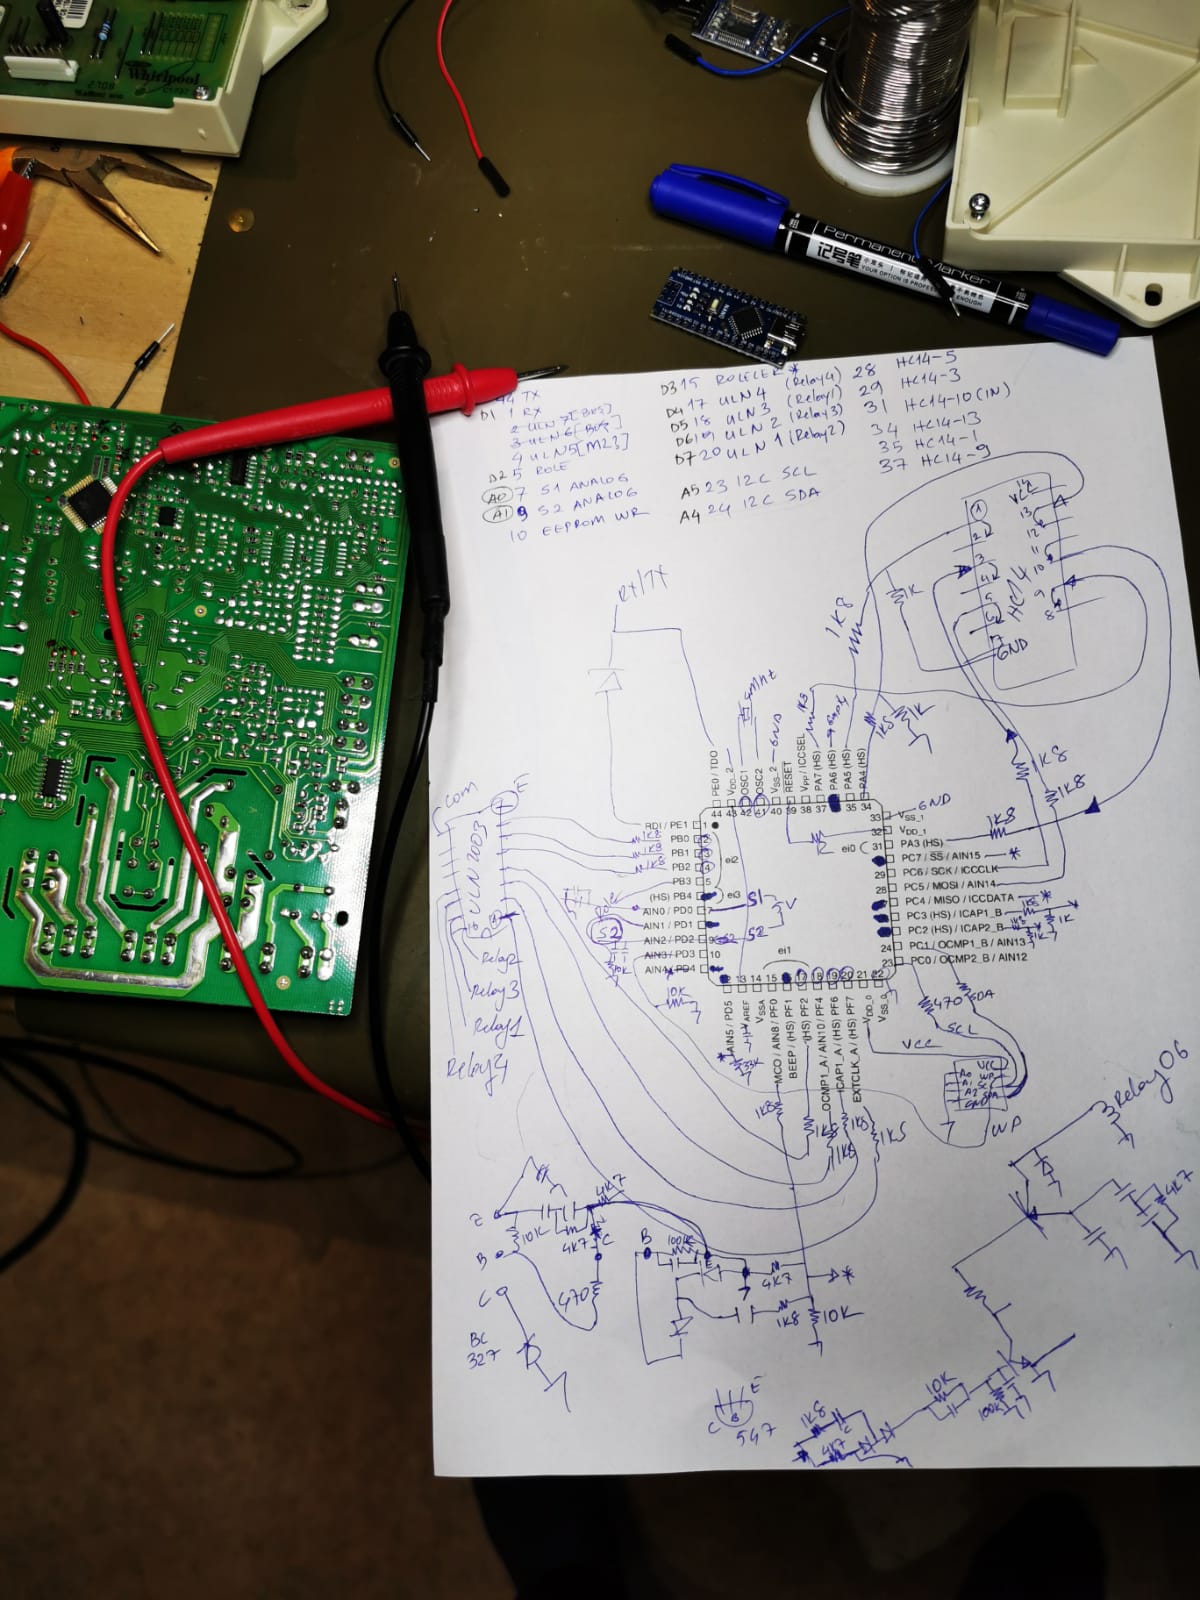 Whirlpool
记号笔
Permanent Marker
YOUR OPTION IS PERFORMANCE
44 TX
D1 1 RX
2 ULN 7[BUS]
3 ULN6[BUS]
4 ULN5[M23]
D2 5 ROLE
A0 7 S1 ANALOG
A1 9 S2 ANALOG
10 EEPROM WR
D3 15 ROLELER *
D4 17 ULN 4 (Relay4)
D5 18 ULN 3 (Relay1)
D6 19 ULN 2 (Relay3)
D7 20 ULN 1 (Relay2)
A5 23 I2C SCL
A4 24 I2C SDA
28 HC14-5
29 HC14-3
31 HC14-10(IN)
34 HC14-13
35 HC14-1
37 HC14-9
RX/TX
1K8
1K
HC14
GND
VCC
1K5
1K
1K8
1K8
1K8
GND
PE0 / TDO
VDD_2
OSC1
OSC2
VSS_2
RESET
VPP / ICCSEL
PA7 (HS)
PA6 (HS)
PA5 (HS)
PA4 (HS)
44 43 42 41 40 39 38 37 35 34
RDI / PE1 1
PB0
PB1
PB2
PB3 5
(HS) PB4
AIN0 / PD0 7
AIN1 / PD1
AIN2 / PD2 9
AIN3 / PD3 10
AIN4 / PD4
ei2
ei3
ei0
ei1
S1
S2
33 VSS_1
32 VDD_1
31 PA3 (HS)
PC7 / SS / AIN15
29 PC6 / SCK / ICCCLK
28 PC5 / MOSI / AIN14
PC4 / MISO / ICCDATA
PC3 (HS) / ICAP1_B
PC2 (HS) / ICAP2_B
24 PC1 / OCMP1_B / AIN13
23 PC0 / OCMP2_B / AIN12
12 13 14 15 17 18 19 20 21 22
AIN5 / PD5
VAREF
VSSA
MCO / AIN8 / PF0
BEEP / (HS) PF1
(HS) PF2
OCMP1_A / AIN10 / PF4
ICAP1_A / (HS) PF6
EXTCLK_A / (HS) PF7
VDD_0
VSS_0
COM
E
ULN2003
1K8
1K8
1K8
S2
10K
33K
Relay2
Relay3
Relay1
Relay4
470
SDA
SCL
VCC
VCC
A0 WP
A1 SC
A2 SDA
GND
WP
1K8
1K8
1K8
1K5
Relay06
4K7
E
10K
4K7
4K7
C
B
470
C
BC
327
B
100K
E
4K7
1K8
10K
E
C
B
547
1K8
4K7
10K
100K